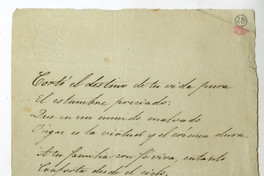 28
Cortó el destino de tu vida pura
El estambre preciado:
Que en un mundo malvado
Fugaz es la virtud y el crimen dura.
A tu familia con fé viva, cuanto
Conforta desde el cielo,